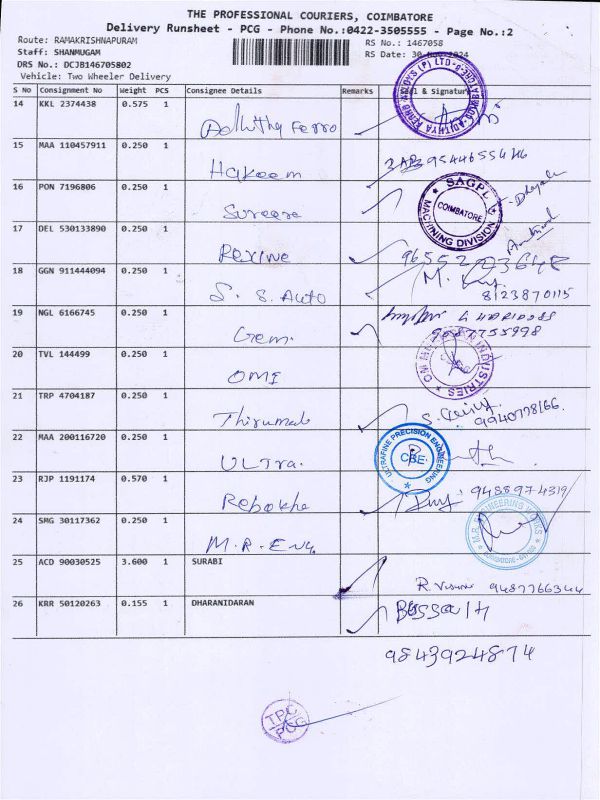 THE PROFESSIONAL COURIERS, COIMBATORE
Delivery Runsheet - PCG - Phone No.:0422-3505555 - Page No.:2
Route: RAMAKRISHNAPURAM RS No.: 1467058
Staff: SHANMUGAM RS Date: 30-Nov-2024
DRS No.: DCJB146705802
Vehicle: Two Wheeler Delivery
S No Consignment No Weight PCS Consignee Details Remarks & Signature
14 KKL 2374438 0.575 1
Adhitha Ferro
15 MAA 110457911 0.250 1
Hakeem
16 PON 7196806 0.250 1
SAGPL
COIMBATORE
MACHINING DIVISION
17 DEL 530133890 0.250 1
Rexine
18 GGN 911444094 0.250 1
S. S. Auto
8123870115
19 NGL 6166745 0.250 1
Gem.
20 TVL 144499 0.250 1
OMI
INDUSTRIES
21 TRP 4704187 0.250 1
Thirumal
22 MAA 200116720 0.250 1
ULTRA.
ULTRAFINE PRECISION ENGINEERING
CBE
23 RJP 1191174 0.570 1
9488974319
24 SMG 30117362 0.250 1
M.R. Eng.
M.R. ENGINEERING WORKS
25 ACD 90030525 3.600 1 SURABI
9487766344
26 KRR 50120263 0.155 1 DHARANIDARAN
9843924874
TPC
PCG